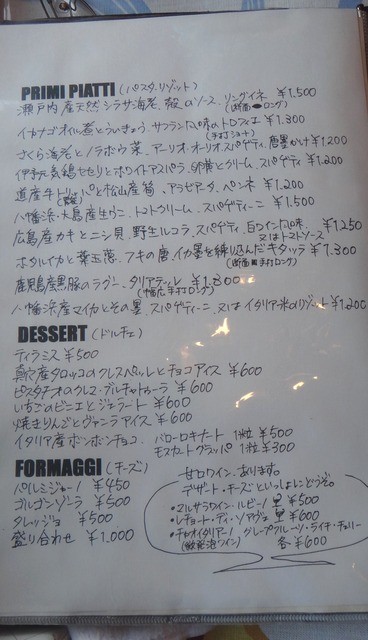 PRIMI PIATTI (パスタ.リゾット)
瀬戸内産天然シラサ海老、殻のソース、リングイネ ¥1.500
(断面 ロング)
イカナゴオイル煮とういきょう、サフラン風味のトロフィエ ¥1.300
(手打ショート)
さくら海老とノラボウ菜、アーリオ・オーリオ、スパゲティ 唐墨かけ ¥1200
伊予赤鶏せせりとホワイトアスパラ、卵黄とクリーム、スパゲティ ¥1.200
道産牛トリッパと松山産筍、アラビアータ、ペンネ ¥1.200
八幡浜・大島産生うに、トマトクリーム、スパゲティーニ ¥1.500
広島産カキとニシ貝、野生ルコラ、スパゲティ、白ワイン風味 ¥1250
又はトマトソース
ホタルイカと葉玉葱、フキの唐、イカ墨を練り込んだキタッラ ¥1.300
(断面■手打ロング)
鹿児島産黒豚のラグー、タリアテッレ ¥1.300
(幅広手打ロング)
八幡浜産マイカとその墨、スパゲティーニ、又はイタリア米のリゾット ¥1.200
DESSERT (ドルチェ)
ティラミス ¥500
真穴産タロッコのクレスペッレとチョコアイス ¥600
ピスタチオのクレマ・ブルチャトゥーラ ¥600
いちごのビニエとジェラート ¥600
焼きりんごとヴァニラアイス ¥600
イタリア産ボンボンチョコ、バローロキナート 1粒 ¥500
モスカートグラッパ 1粒 ¥300
FORMAGGI (チーズ)
パルミジャーノ ¥450
ゴルゴンゾーラ ¥500
タレッジョ ¥500
盛り合わせ ¥1.000
甘口ワイン、あります。
デザート・チーズといっしょにどうぞ。
・マルサラワイン・ルビーノ ¥500
・レチョート・ディ・ソアヴェ ¥600
・チャオイタリアーノ、グレープフルーツ・ライチ・チェリー
(微発泡ワイン) 各¥600